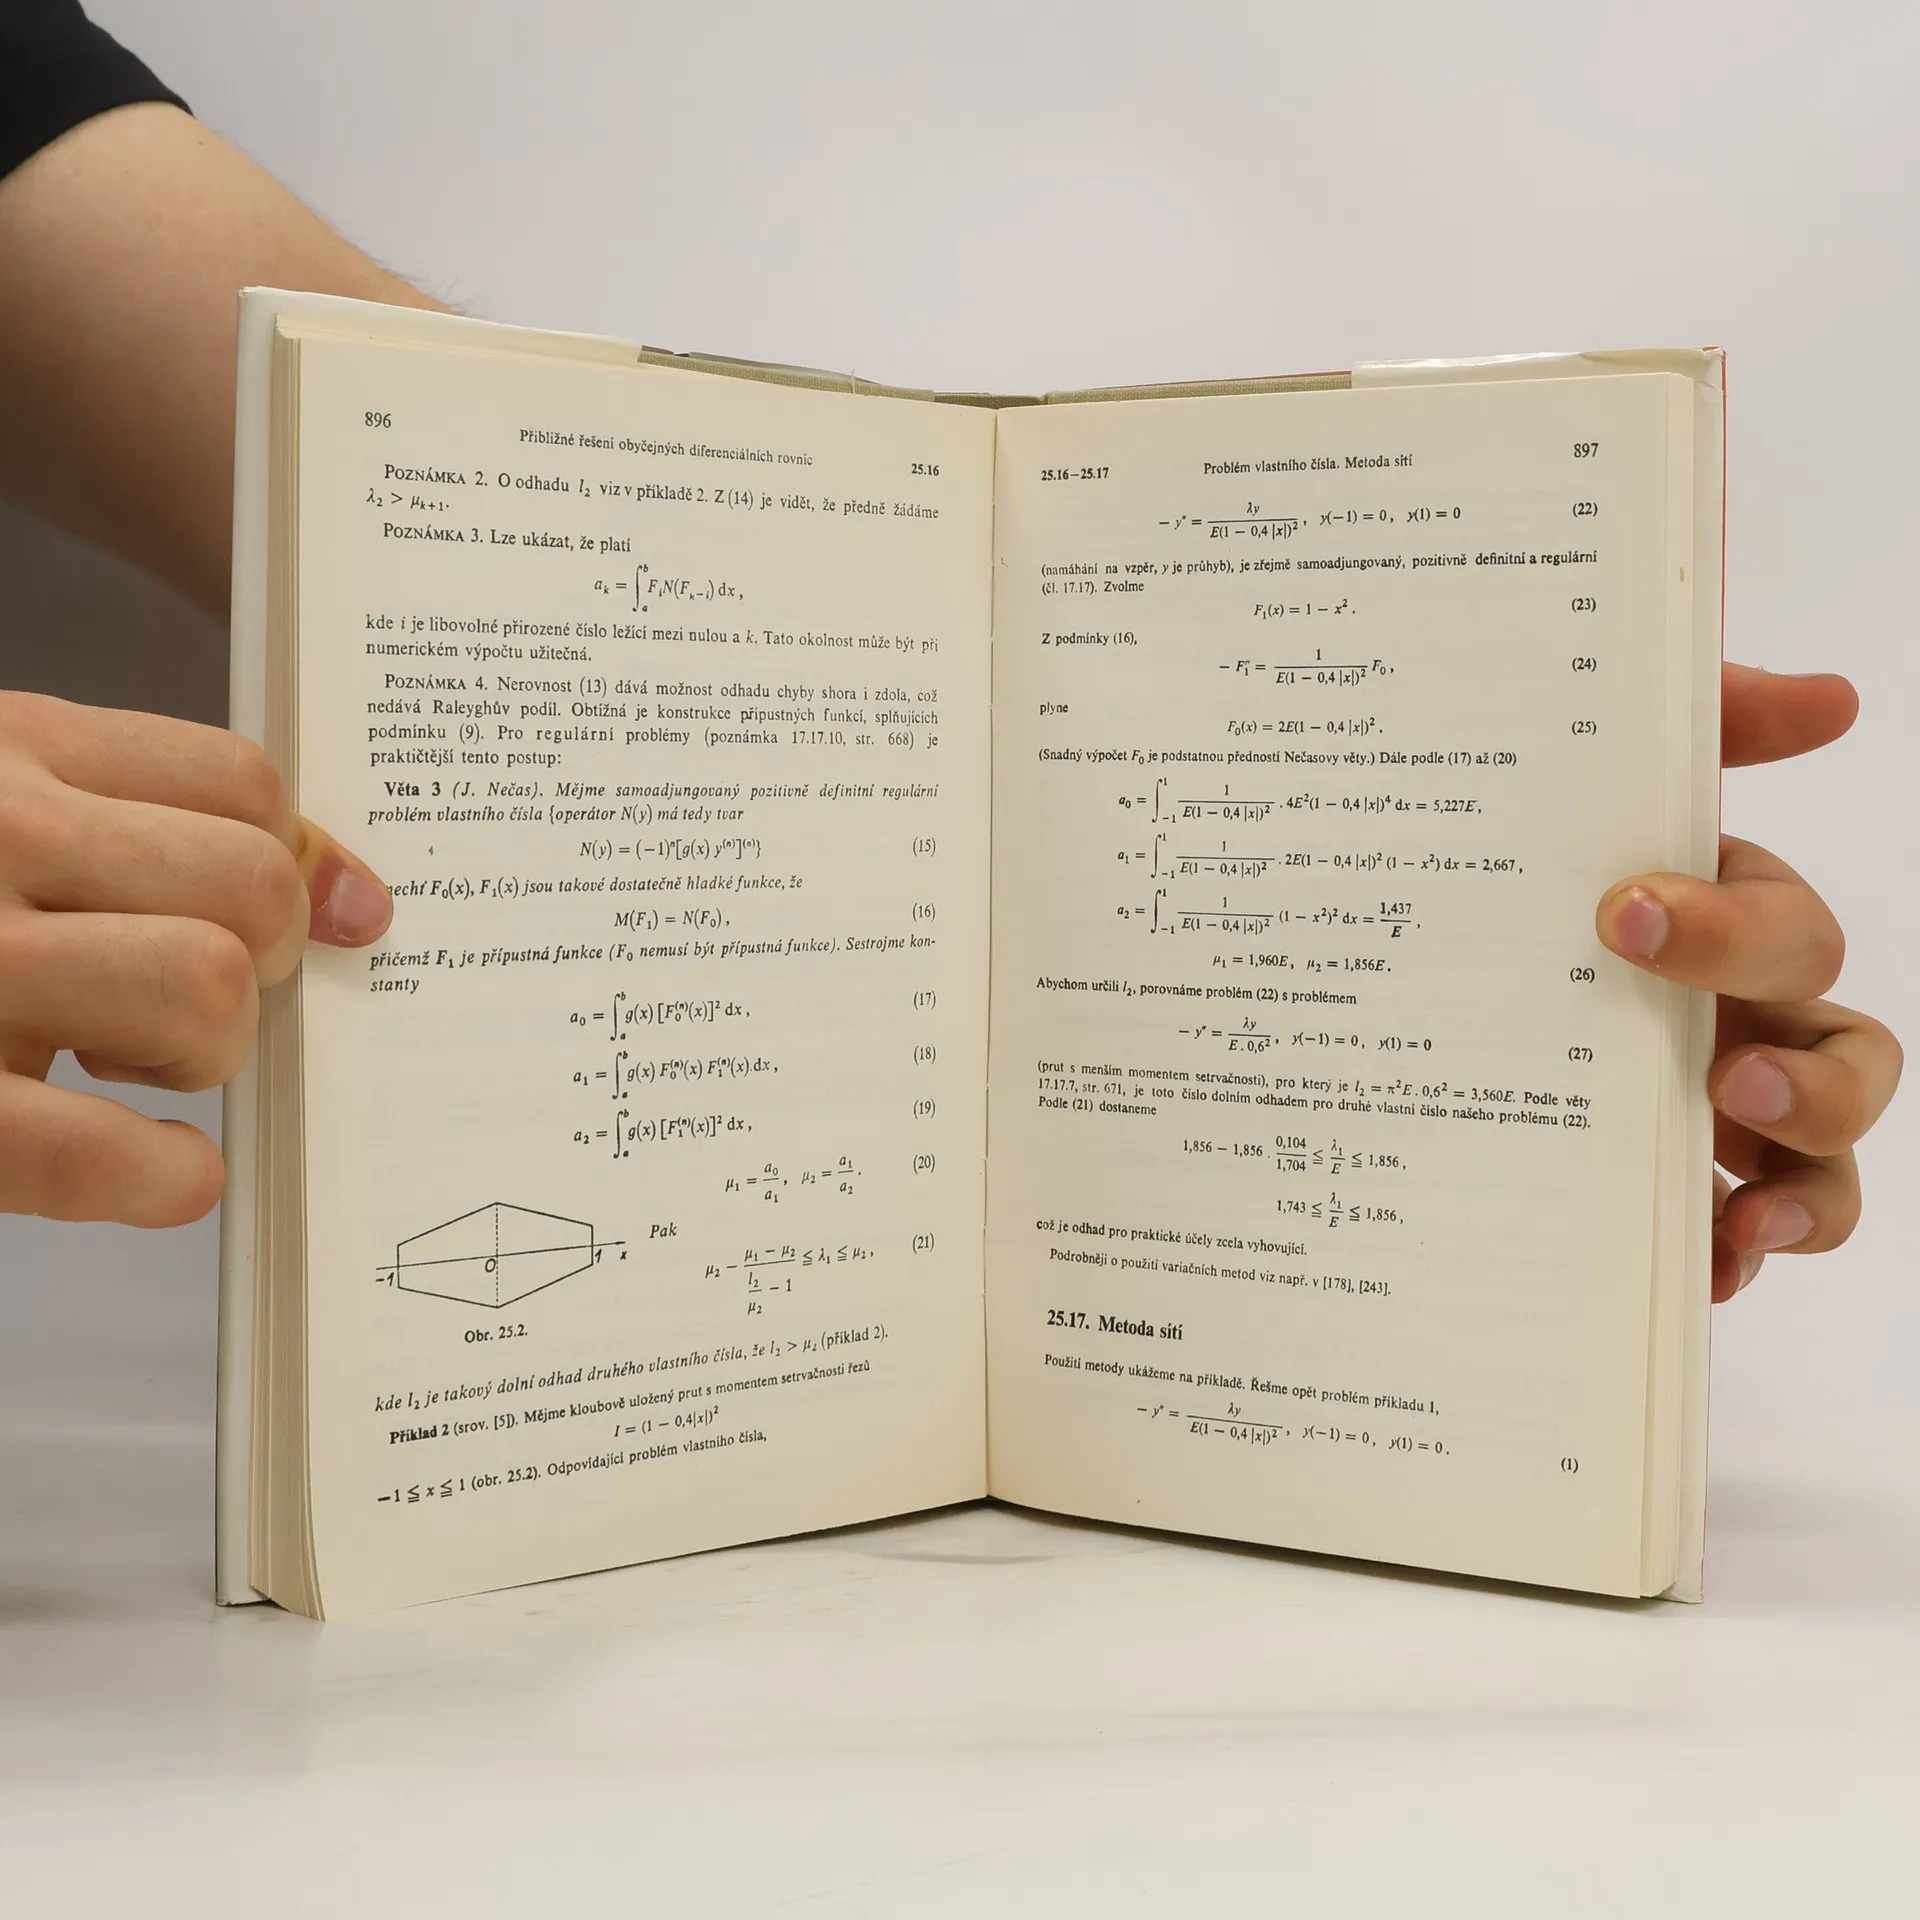 896
Přibližné řešení obyčejných diferenciálních rovnic
25.16
POZNÁMKA 2. O odhadu l₂ viz v příkladě 2. Z (14) je vidět, že předně žádáme
λ₂ > μₖ₊₁.
POZNÁMKA 3. Lze ukázat, že platí
aₖ = ∫ₐᵇ FᵢN(Fₖ₋ᵢ) dx ,
kde i je libovolné přirozené číslo ležící mezi nulou a k. Tato okolnost může být při
numerickém výpočtu užitečná.
POZNÁMKA 4. Nerovnost (13) dává možnost odhadu chyby shora i zdola, což
nedává Raleyghův podíl. Obtížná je konstrukce přípustných funkcí, splňujících
podmínku (9). Pro regulární problémy (poznámka 17.17.10, str. 668) je
praktičtější tento postup:
Věta 3 (J. Nečas). Mějme samoadjungovaný pozitivně definitní regulární
problém vlastního čísla {operátor N(y) má tedy tvar
N(y) = (−1)ⁿ[g(x) y⁽ⁿ⁾]⁽ⁿ⁾} (15)
nechť F₀(x), F₁(x) jsou takové dostatečně hladké funkce, že
M(F₁) = N(F₀) , (16)
přičemž F₁ je přípustná funkce (F₀ nemusí být přípustná funkce). Sestrojme kon-
stanty
a₀ = ∫ₐᵇ g(x) [F₀⁽ⁿ⁾(x)]² dx , (17)
a₁ = ∫ₐᵇ g(x) F₀⁽ⁿ⁾(x) F₁⁽ⁿ⁾(x) dx , (18)
a₂ = ∫ₐᵇ g(x) [F₁⁽ⁿ⁾(x)]² dx , (19)
μ₁ = a₀/a₁ , μ₂ = a₁/a₂ . (20)
Pak
μ₂ − (μ₁ − μ₂)/(l₂/μ₂ − 1) ≦ λ₁ ≦ μ₂ , (21)
−1 0 1 x
Obr. 25.2.
kde l₂ je takový dolní odhad druhého vlastního čísla, že l₂ > μ₂ (příklad 2).
Příklad 2 (srov. [5]). Mějme kloubově uložený prut s momentem setrvačnosti řezů
I = (1 − 0,4|x|)²
−1 ≦ x ≦ 1 (obr. 25.2). Odpovídající problém vlastního čísla,
25.16–25.17
Problém vlastního čísla. Metoda sítí
897
− y″ = λy/(E(1 − 0,4 |x|)²) , y(−1) = 0 , y(1) = 0 (22)
(namáhání na vzpěr, y je průhyb), je zřejmě samoadjungovaný, pozitivně definitní a regulární
(čl. 17.17). Zvolme
F₁(x) = 1 − x² . (23)
Z podmínky (16),
− F₁″ = 1/(E(1 − 0,4 |x|)²) F₀ , (24)
plyne
F₀(x) = 2E(1 − 0,4 |x|)² . (25)
(Snadný výpočet F₀ je podstatnou předností Nečasovy věty.) Dále podle (17) až (20)
a₀ = ∫₋₁¹ 1/(E(1 − 0,4 |x|)²) . 4E²(1 − 0,4 |x|)⁴ dx = 5,227E ,
a₁ = ∫₋₁¹ 1/(E(1 − 0,4 |x|)²) . 2E(1 − 0,4 |x|)² (1 − x²) dx = 2,667 ,
a₂ = ∫₋₁¹ 1/(E(1 − 0,4 |x|)²) (1 − x²)² dx = 1,437/E ,
μ₁ = 1,960E , μ₂ = 1,856E . (26)
Abychom určili l₂, porovnáme problém (22) s problémem
− y″ = λy/(E . 0,6²) , y(−1) = 0 , y(1) = 0 (27)
(prut s menším momentem setrvačnosti), pro který je l₂ = π²E . 0,6² = 3,560E. Podle věty
17.17.7, str. 671, je toto číslo dolním odhadem pro druhé vlastní číslo našeho problému (22).
Podle (21) dostaneme
1,856 − 1,856 . 0,104/1,704 ≦ λ₁/E ≦ 1,856 ,
1,743 ≦ λ₁/E ≦ 1,856 ,
což je odhad pro praktické účely zcela vyhovující.
Podrobněji o použití variačních metod viz např. v [178], [243].
25.17. Metoda sítí
Použití metody ukážeme na příkladě. Řešme opět problém příkladu 1,
− y″ = λy/(E(1 − 0,4 |x|)²) , y(−1) = 0 , y(1) = 0 . (1)